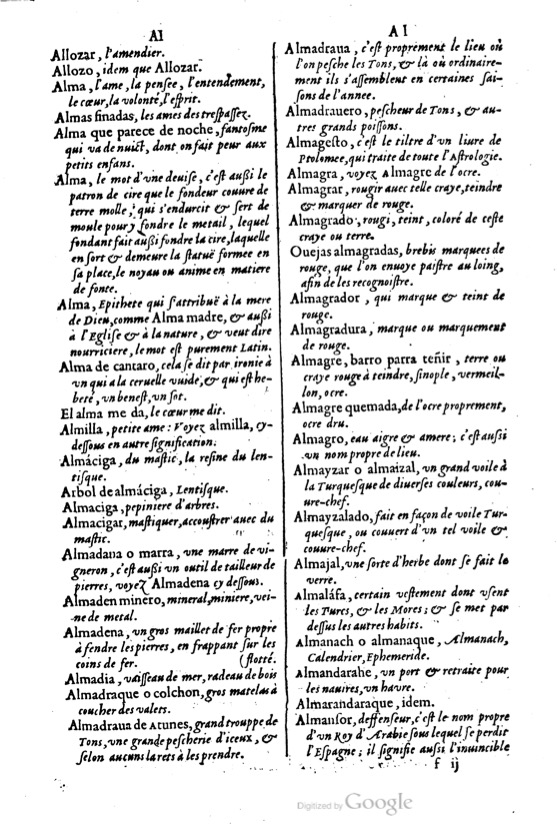 Al
Allozar, l'amendier.
Allozo, idem que Allozar.
Alma, l'ame, la pensee, l'entendement,
le cœur, la volonté, l'esprit.
Almas finadas, les ames des trespassez.
Alma que parece de noche, fantosme
qui va de nuict, dont on fait peur aux
petits enfans.
Alma, le mot d'une deuise, c'est aussi le
patron de cire que le fondeur couure de
terre molle, qui s'endurcit & sert de
moule pour y fondre le metail, lequel
fondant fait aussi fondre la cire, laquelle
en sort & demeure la statuë formee en
sa place, le noyau ou anime en matiere
de fonte.
Alma, Epithete qui s'attribuë à la mere
de Dieu, comme Alma madre, & aussi
à l'Eglise & à la nature, & veut dire
nourriciere, le mot est purement Latin.
Alma de cantaro, cela se dit par ironie à
vn qui a la ceruelle vuide, & qui est he-
beté, vn benest, vn sot.
El alma me da, le cœur me dit.
Almilla, petite ame: Voyez almilla, cy-
dessous en autre signification.
Almáciga, du mastic, la resine du len-
tisque.
Arbol de almáciga, Lentisque.
Almaciga, pepiniere d'arbres.
Almacigar, mastiquer, accoustrer auec du
mastic.
Almadana o marra, vne marre de vi-
gneron, c'est aussi vn outil de tailleur de
pierres, voyez Almadena cy dessous.
Almaden minero, mineral, miniere, vei-
ne de metal.
Almadena, vn gros maillet de fer propre
à fendre les pierres, en frappant sur les
coins de fer. (flotté.
Almadia, vaisseau de mer, radeau de bois
Almadraque o colchon, gros matelas à
coucher des valets.
Almadraua de Atunes, grand trouppe de
Tons, vne grande pescherie d'iceux, &
selon aucuns la rets à les prendre.
A I
Almadraua, c'est proprement le lieu où
l'on pesche les Tons, & là où ordinaire-
ment ils s'assemblent en certaines sai-
sons de l'annee.
Almadrauero, pescheur de Tons, & au-
tres grands poissons.
Almagesto, c'est le tiltre d'vn liure de
Ptolomee, qui traite de toute l'Astrologie.
Almagra, voyez Almagre de l'ocre.
Almagrar, rougir auec telle craye, teindre
& marquer de rouge.
Almagrado, rougi, teint, coloré de ceste
craye ou terre.
Ouejas almagradas, brebis marquees de
rouge, que l'on enuoye paistre au loing,
afin de les recognoistre.
Almagrador, qui marque & teint de
rouge.
Almagradura, marque ou marquement
de rouge.
Almagre, barro parra teñir, terre ou
craye rouge à teindre, sinople, vermeil-
lon, ocre.
Almagre quemada, de l'ocre proprement,
ocre dru.
Almagro, eau aigre & amere; c'est aussi
vn nom propre de lieu.
Almayzar o almaizal, vn grand voile à
la Turquesque de diuerses couleurs, cou-
ure-chef.
Almayzalado, fait en façon de voile Tur-
quesque, ou couuert d'vn tel voile &
couure-chef.
Almajal, vne sorte d'herbe dont se fait le
verre.
Almaláfa, certain vestement dont vsent
les Turcs, & les Mores; & se met par
dessus les autres habits.
Almanach o almanaque, Almanach,
Calendrier, Ephemeride.
Almandarahe, vn port & retraite pour
les nauires, vn havre.
Almarandaraque, idem.
Almansor, deffenseur, c'est le nom propre
d'vn Roy d'Arabie sous lequel se perdit
l'Espagne; il signifie aussi l'inuincible
f ij
Digitized by Google